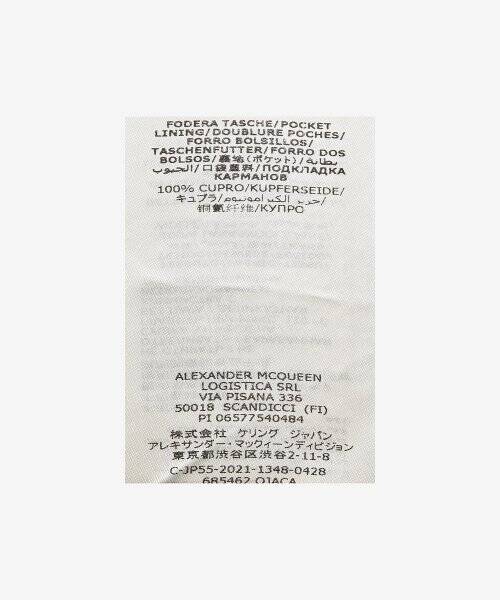 FODERA TASCHE/POCKET
LINING/DOUBLURE POCHES/
FORRO BOLSILLOS/
TASCHENFUTTER/FORRO DOS
BOLSOS/裏地(ポケット)/بطانة
الجيوب/口袋里料/ПОДКЛАДКА
КАРМАНОВ
100% CUPRO/KUPFERSEIDE/
キュプラ/حرير الكبرامونيوم/
铜氨纤维/КУПРО
ALEXANDER MCQUEEN
LOGISTICA SRL
VIA PISANA 336
50018 SCANDICCI (FI)
PI 06577540484
株式会社 ケリング ジャパン
アレキサンダー・マックィーンディビジョン
東京都渋谷区渋谷2-11-8
C-JP55-2021-1348-0428
685462 QJACA